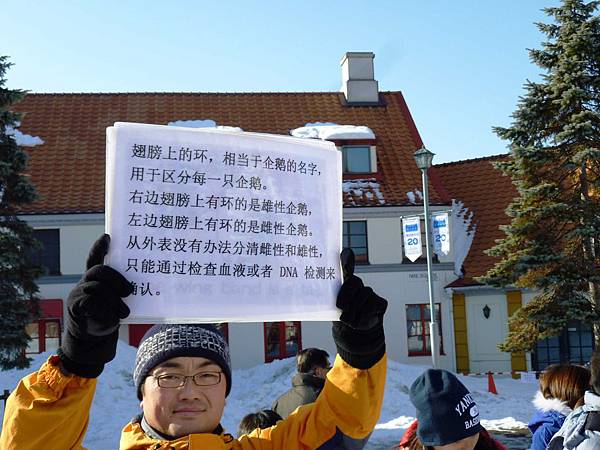 翅膀上的环，相当于企鹅的名字，
用于区分每一只企鹅。
右边翅膀上有环的是雄性企鹅，
左边翅膀上有环的是雌性企鹅。
从外表没有办法分清雌性和雄性，
只能通过检查血液或者 DNA 检测来
确认。
20
20
YANK
BASE